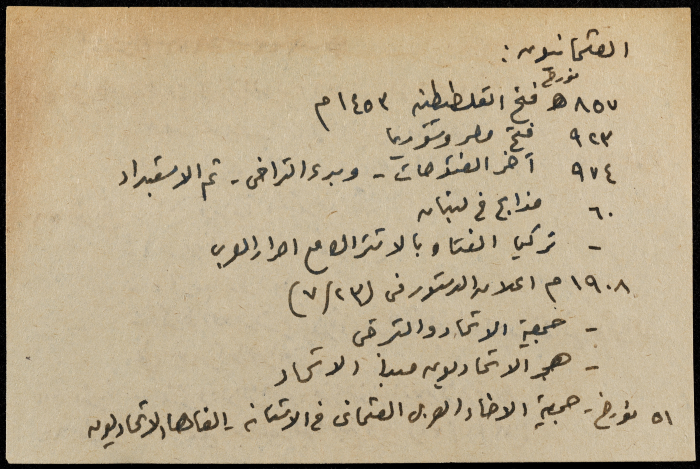 العثمانيون :
٨٥٧ هـ فتح القسطنطينية ١٤٥٣ م
٩٢٣ فتح مصر وسوريا
٩٧٤ آخر الفتوحات - وبدء التراخي - ثم الاستبداد
٦٠ مذابح في لبنان
- تركيا الفتاة بالاشتراك مع احرار العرب
١٩٠٨ م اعلان الدستور في (٧/٢٣)
- جمعية الاتحاد والترقي
- هجر الاتحاديون مبدأ الاتحاد
٥١ جمعية الاخاء العربي العثماني في الاستانة - الغاها الاتحاديون